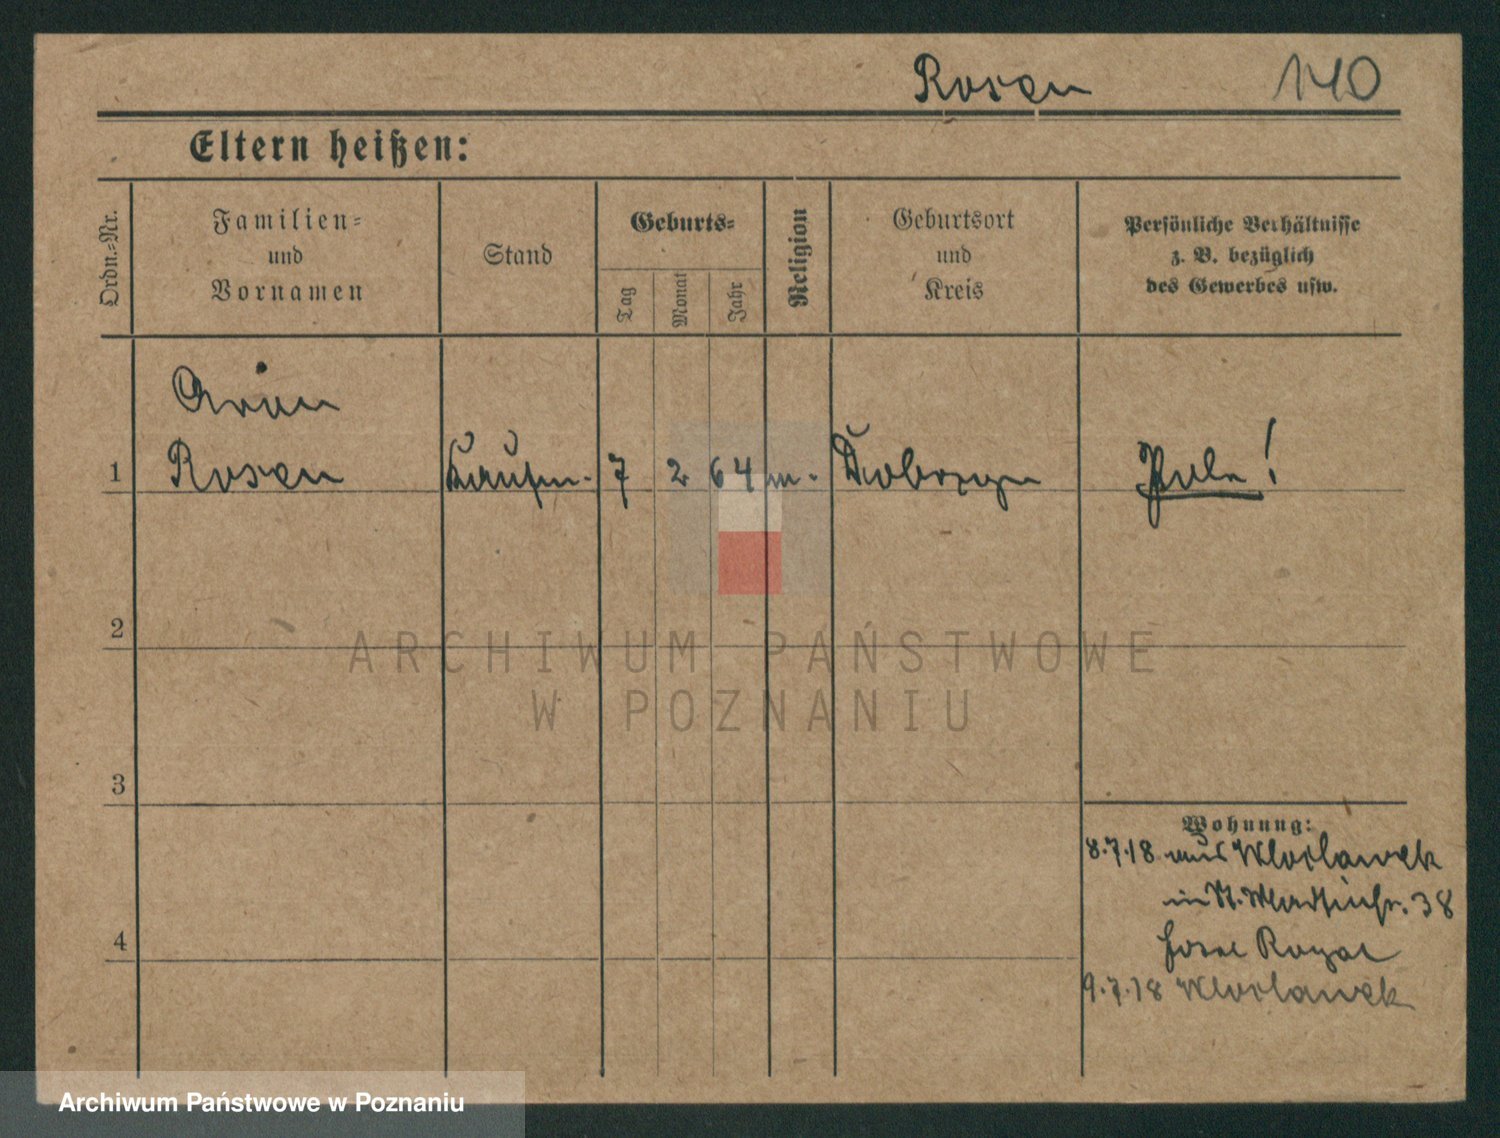 Rosen 140
Eltern heißen:
Ordn.-Nr.
Familien-
und
Vornamen
Stand
Geburts-
Tag
Monat
Jahr
Religion
Geburtsort
und
Kreis
Persönliche Verhältnisse
z. B. bezüglich
des Gewerbes usw.
1
Rosen
Kaufm. 7 2 64 m. Dobrzyn Pole!
2
3
4
Wohnung:
8.7.18 aus Wloclawek
in St. Martinstr. 38
Hotel Royal
9.7.18 Wloclawek
ARCHIWUM PAŃSTWOWE
W POZNANIU
Archiwum Państwowe w Poznaniu